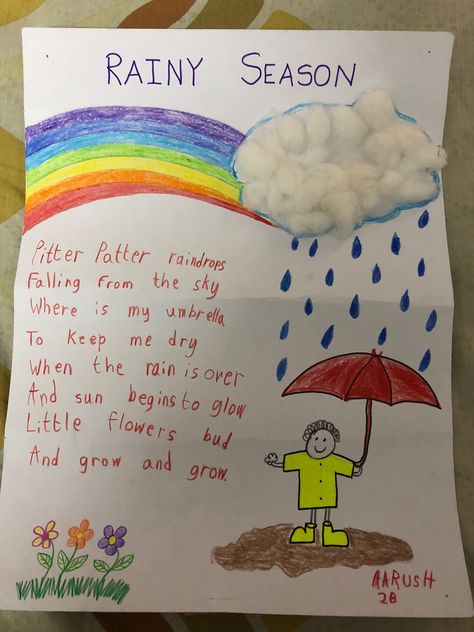 RAINY SEASON
Pitter Patter raindrops
Falling From the sky
Where is my umbrella
To keep me dry
When the rain is over
And sun begins to glow
Little flowers bud
And grow and grow.
AARUSH
2B